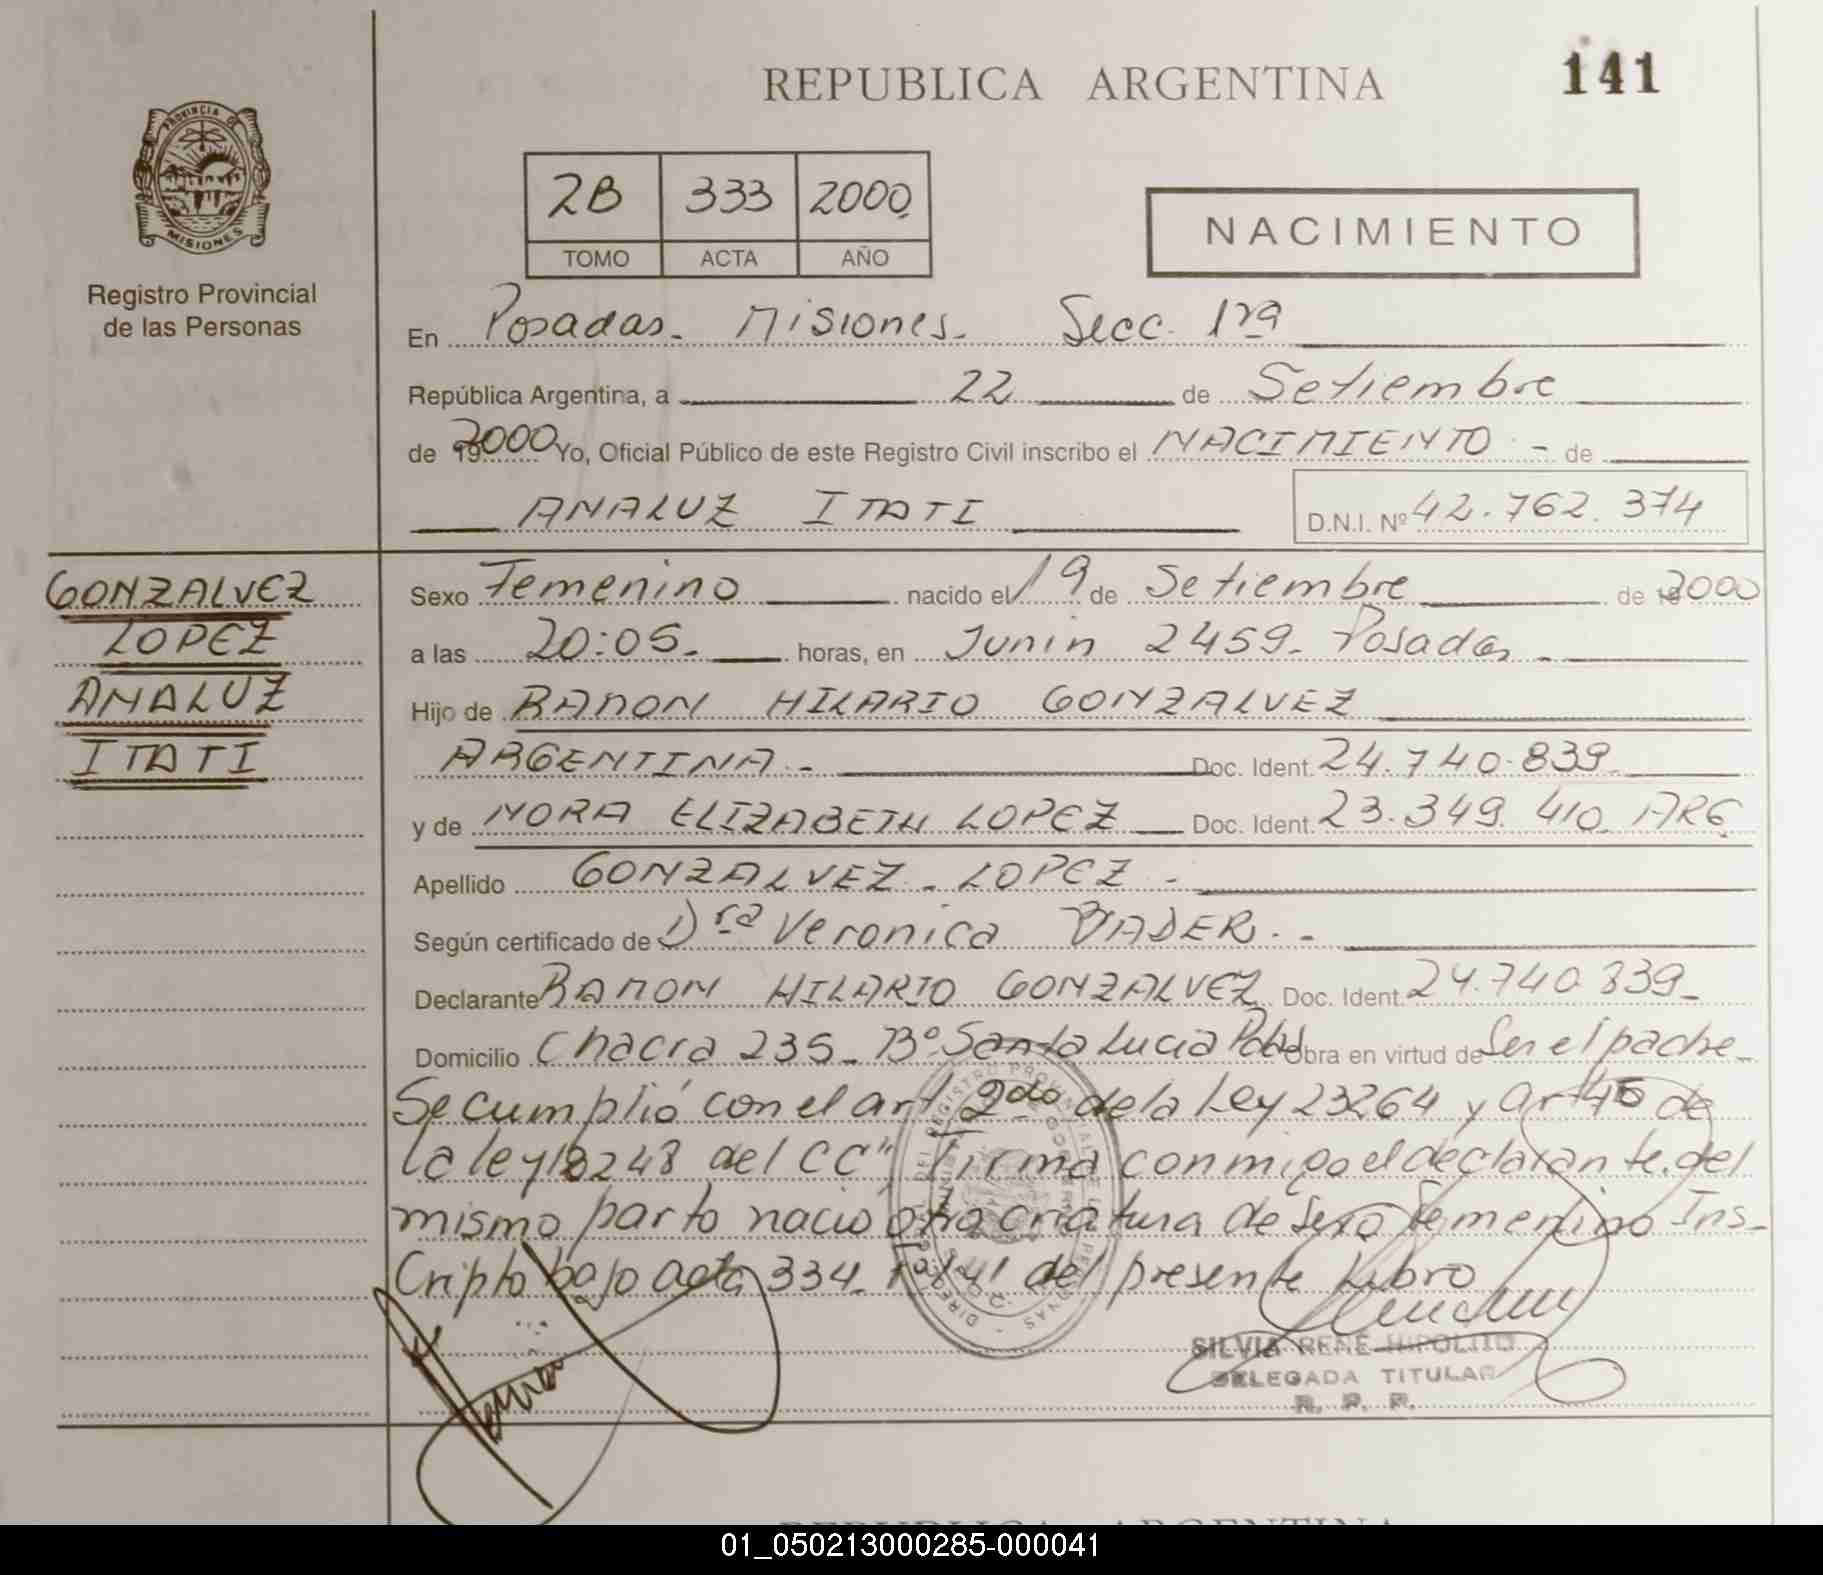 REPUBLICA ARGENTINA
141
PROVINCIA DE
MISIONES
Registro Provincial
de las Personas
2B 333 2000
TOMO ACTA AÑO
NACIMIENTO
En Posadas - Misiones - Secc. 1ra
República Argentina, a 22 de Setiembre
de 2000 Yo, Oficial Público de este Registro Civil inscribo el NACIMIENTO - de
ANALUZ ITATI D.N.I. Nº 42.762.374
GONZALVEZ
LOPEZ
ANALUZ
ITATI
Sexo Femenino nacido el 19 de Setiembre de 2000
a las 20:05 - horas, en Junin 2459 - Posadas -
Hijo de RAMON HILARIO GONZALVEZ
ARGENTINA - Doc. Ident. 24.740.839
y de NORA ELIZABETH LOPEZ Doc. Ident. 23.349.410 ARG
Apellido GONZALVEZ - LOPEZ -
Según certificado de Dra Veronica BADER. -
Declarante RAMON HILARIO GONZALVEZ Doc. Ident. 24.740.839 -
Domicilio Chacra 235 - Bº Santa Lucia Pdas Obra en virtud de Ser el padre -
Se cumplió con el art 2do de la Ley 23264 y art 4º de
la ley 18248 del CC" Firma conmigo el declarante. del
mismo parto nacio otra criatura de sexo femenino Ins-
cripto bajo acta 334 - Fº 141 del presente Libro
SILVIA RENE HIPOLITO
DELEGADA TITULAR
R. P. P.
REPUBLICA ARGENTINA
01_050213000285-000041